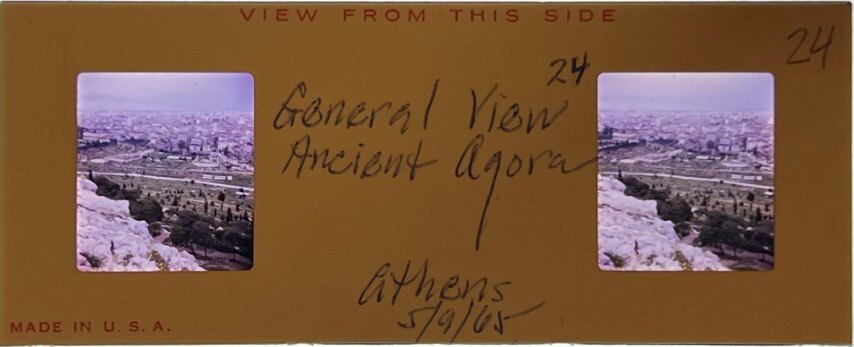 VIEW FROM THIS SIDE
24
24
General View
Ancient Agora
Athens
5/9/65
MADE IN U.S.A.